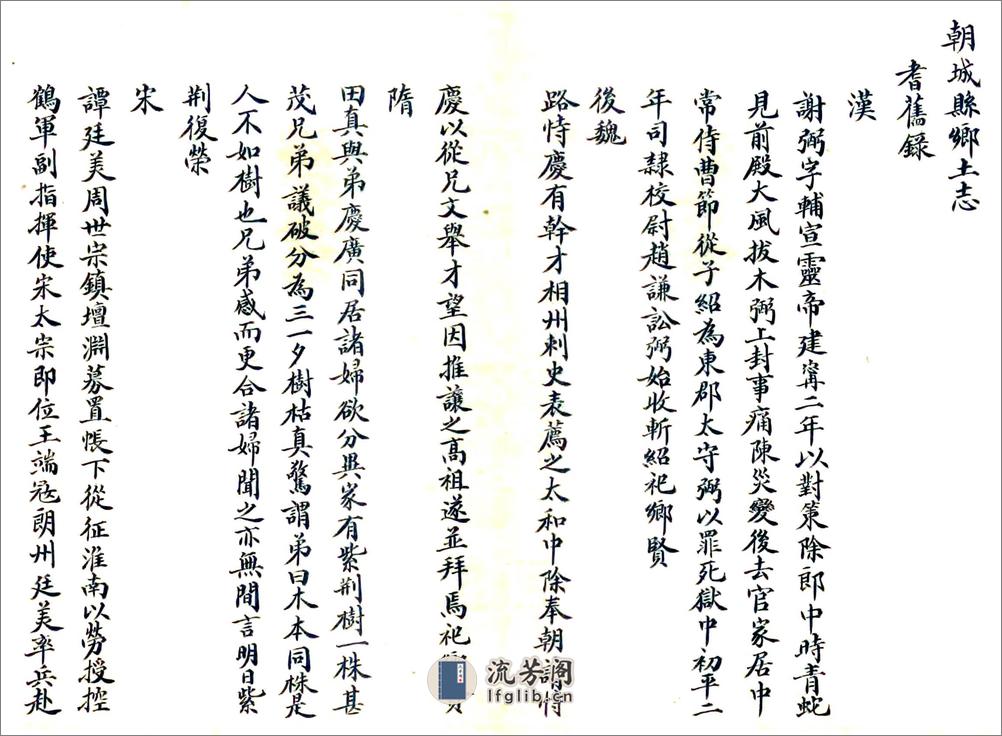 朝城縣鄉土志
耆舊錄
漢
謝弼字輔宣靈帝建寗二年以對策除郎中時青蛇
見前殿大風拔木弼上封事痛陳災變後去官家居中
常侍曹節從子紹為東郡太守弼以罪死獄中初平二
年司隸校尉趙謙訟弼始收斬紹祀鄉賢
後魏
路恃慶有幹才相州刺史表薦之太和中除奉朝請恃
慶以從兄文舉才望因推讓之高祖遂並拜焉祀
隋
田真與弟慶廣同居諸婦欲分異家有紫荆樹一株甚
茂兄弟議破分為三一夕樹枯真驚謂弟曰木本同株是
人不如樹也兄弟感而更合諸婦聞之亦無間言明日紫
荆復榮
宋
譚廷美周世宗鎮壇淵募置帳下從征淮南以勞授控
鶴軍副指揮使宋太宗即位王端寇朗州廷美率兵赴
流芳阁
lfglib.cn